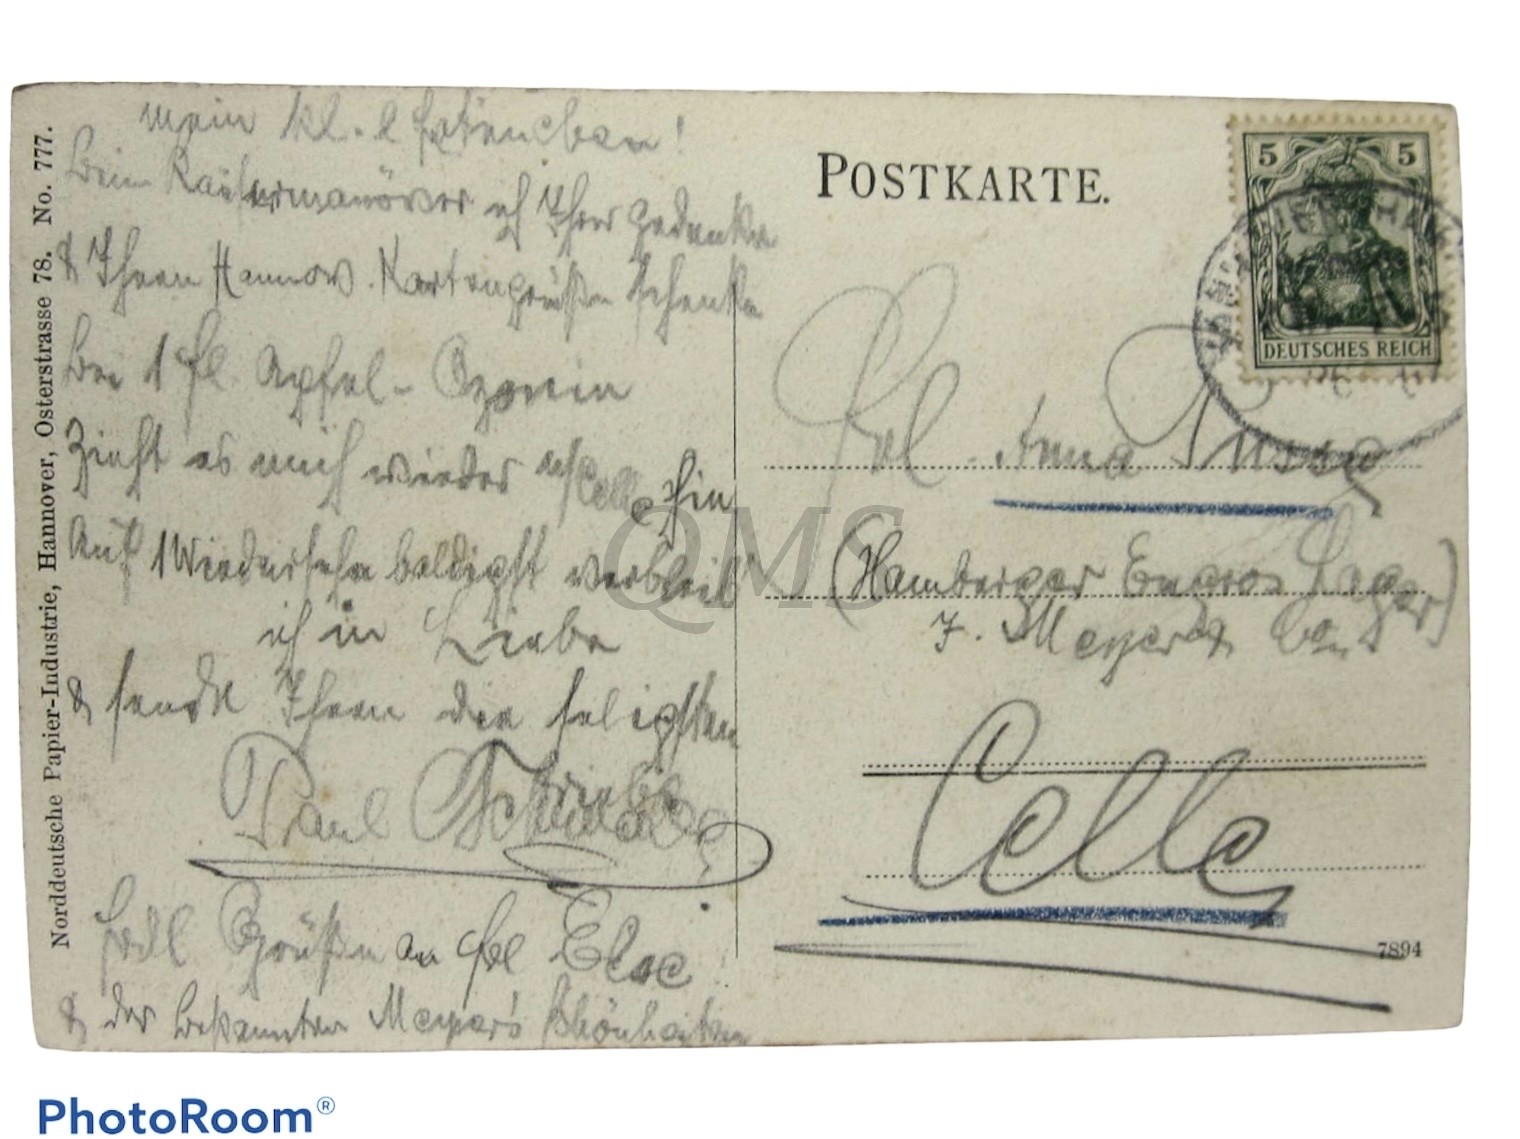 mein kl. l
beim Kaisermanöver ich Ihrer gedenke
& Ihnen Hannov. Kartengrüße schenke
bei 1 fl. Apfel-
Zieht es mich wieder n/Celle hin
Auf Wiedersehn baldigst verbleib
ich in Liebe
& sende Ihnen die seligsten
Triebe
Paul
Frdl Grüße an Frl Else
& der bekannten Meyer's Schönheiten
Norddeutsche Papier-Industrie, Hannover, Osterstrasse 78. No. 777.
POSTKARTE.
5 5
DEUTSCHES REICH
HANNOVER
Frl. Anna
(Hamberger Engros Lager)
Meyer
Celle
7894
QMS
PhotoRoom®